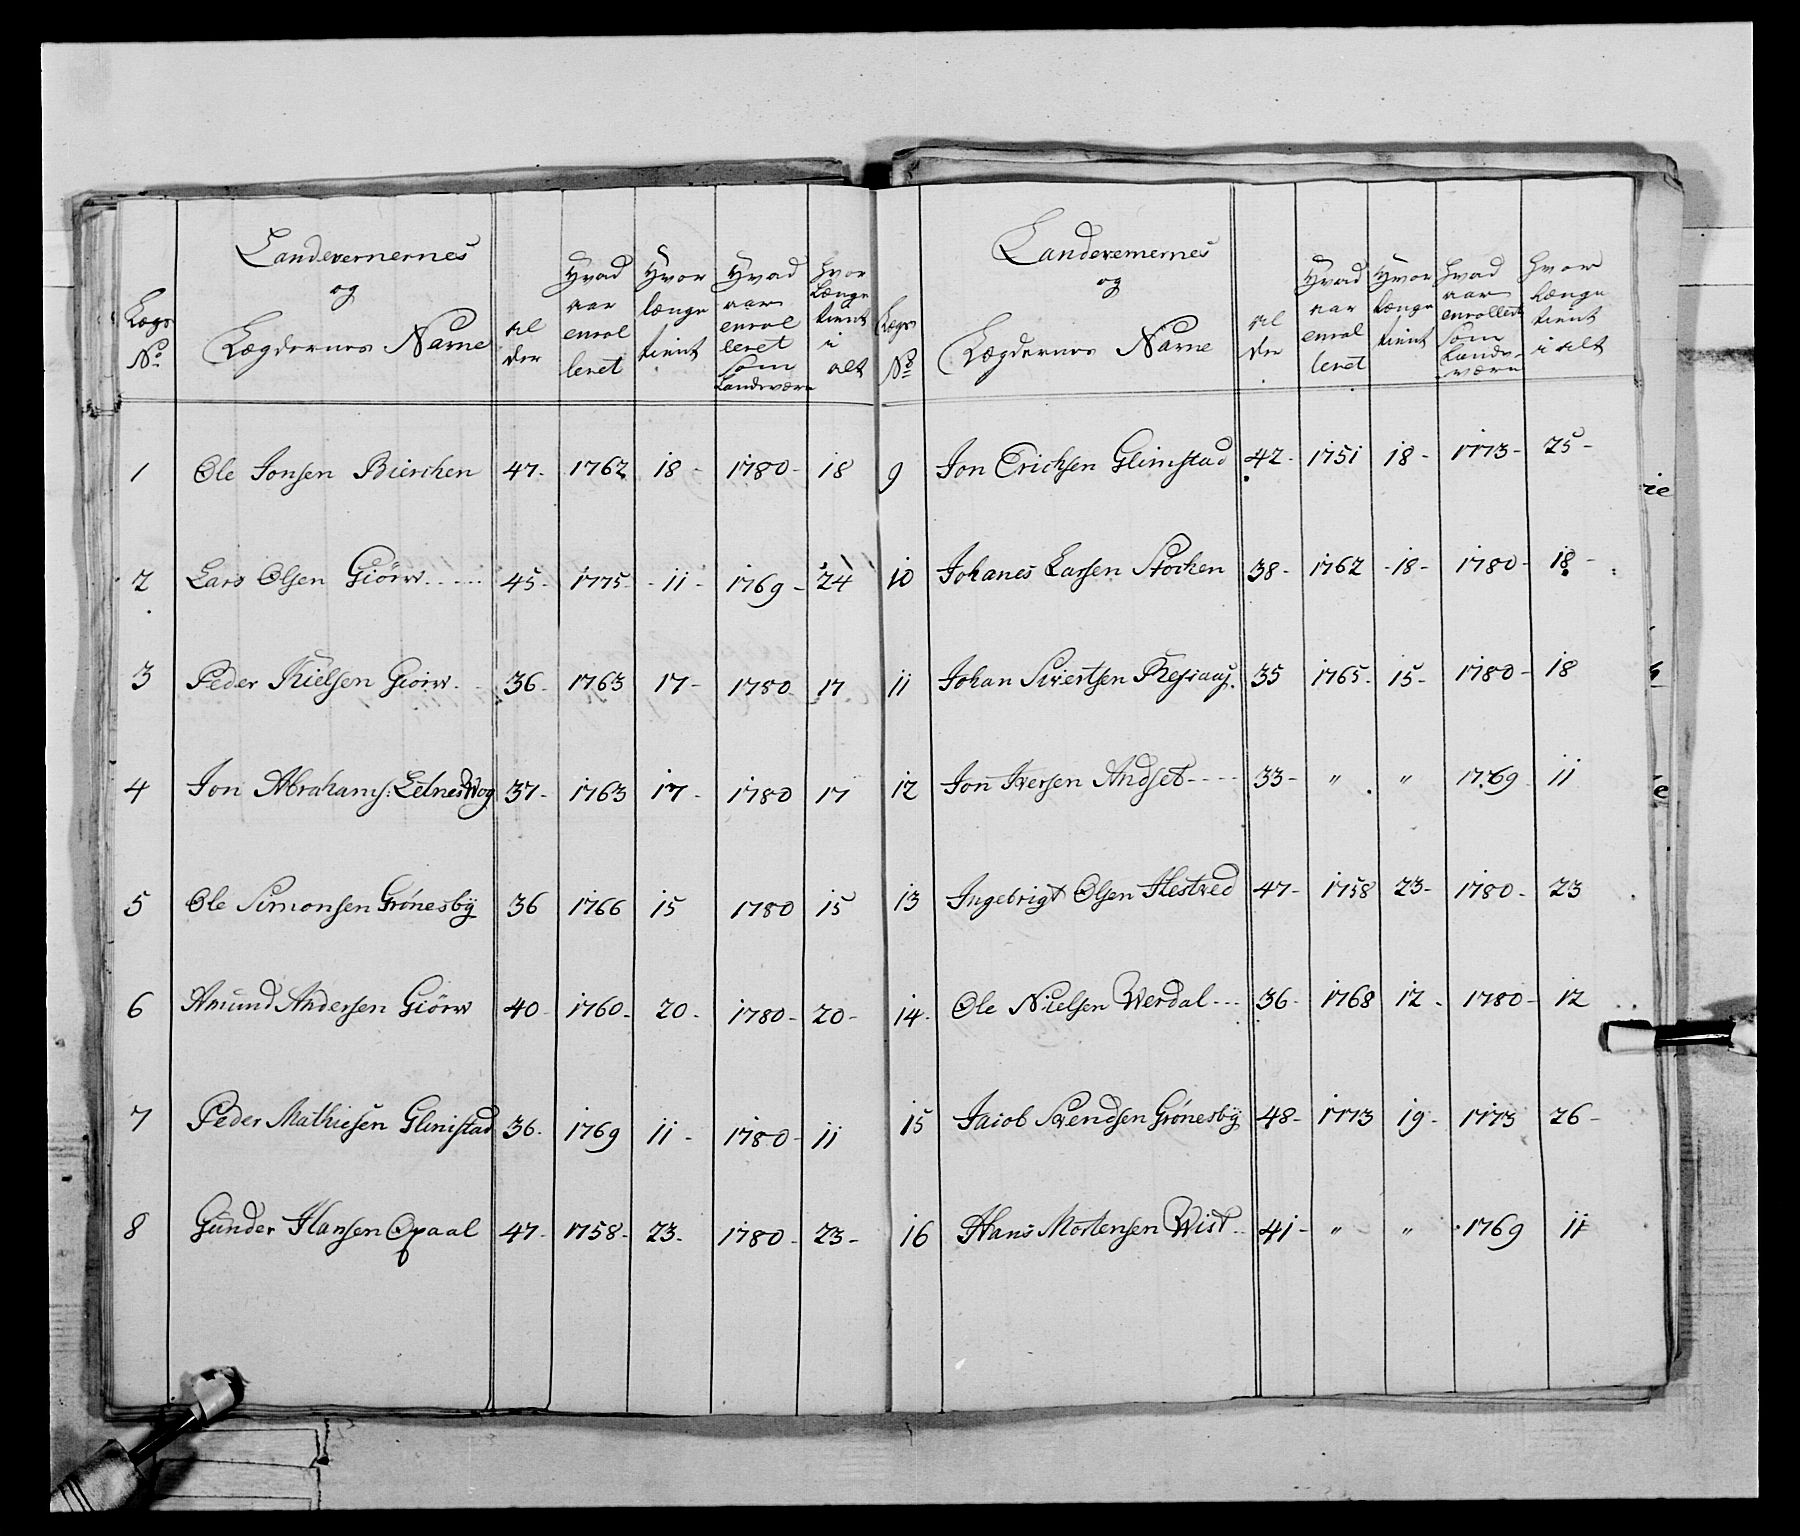 Landevernernes
og
Lægdernes Navne
Lægs No
Al der
Hvad aar enrol leret
Hvor længe tient
Hvad aar enrol leret som Landværn
Hvor Længe tient i alt
1 Ole Jonsen Bierchen 47- 1762 18 - 1780- 18
2 Lars Olsen Giörw 45- 1775 - 11 - 1769- 24
3 Peder Nielsen Giörw 36- 1763 17- 1780 17
4 Jon Abrahams: LetnesWog 37- 1763 17- 1780 17
5 Ole Simonsen Grönesbÿ 36 1766 15 1780 15
6 Amund Andersen Giörw 40- 1760- 20- 1780- 20-
7 Peder Mathiesen Glimstad 36- 1769 11- 1780- 11
8 Gunder Hansen Opaal 47- 1758- 23- 1780- 23-
Landevernernes
og
Lægdernes Navne
Lægs No
Al der
Hvad aar enrol leret
Hvor længe tient
Hvad aar enrolleret som Landeværn
Hvor Længe tient i alt
9 Jon Erichsen Glimstad 42- 1751 18- 1773- 25-
10 Johanes Larsen Stöchen 38- 1762 -18- 1780- 18-
11 Johan Sivertsen 35 1765- 15- 1780- 18
12 Jon Iversen Andset 33- " " 1769 11
13 Ingebrigt Olsen Hestved 47- 1758 23- 1780- 23
14 Ole Nielsen Werdal 36- 1768 12- 1780- 12
15 Jacob Svendsen Grönesbÿ 48- 1773 19- 1773 26-
16 Hans Mortensen Wist 41- " " 1769 11